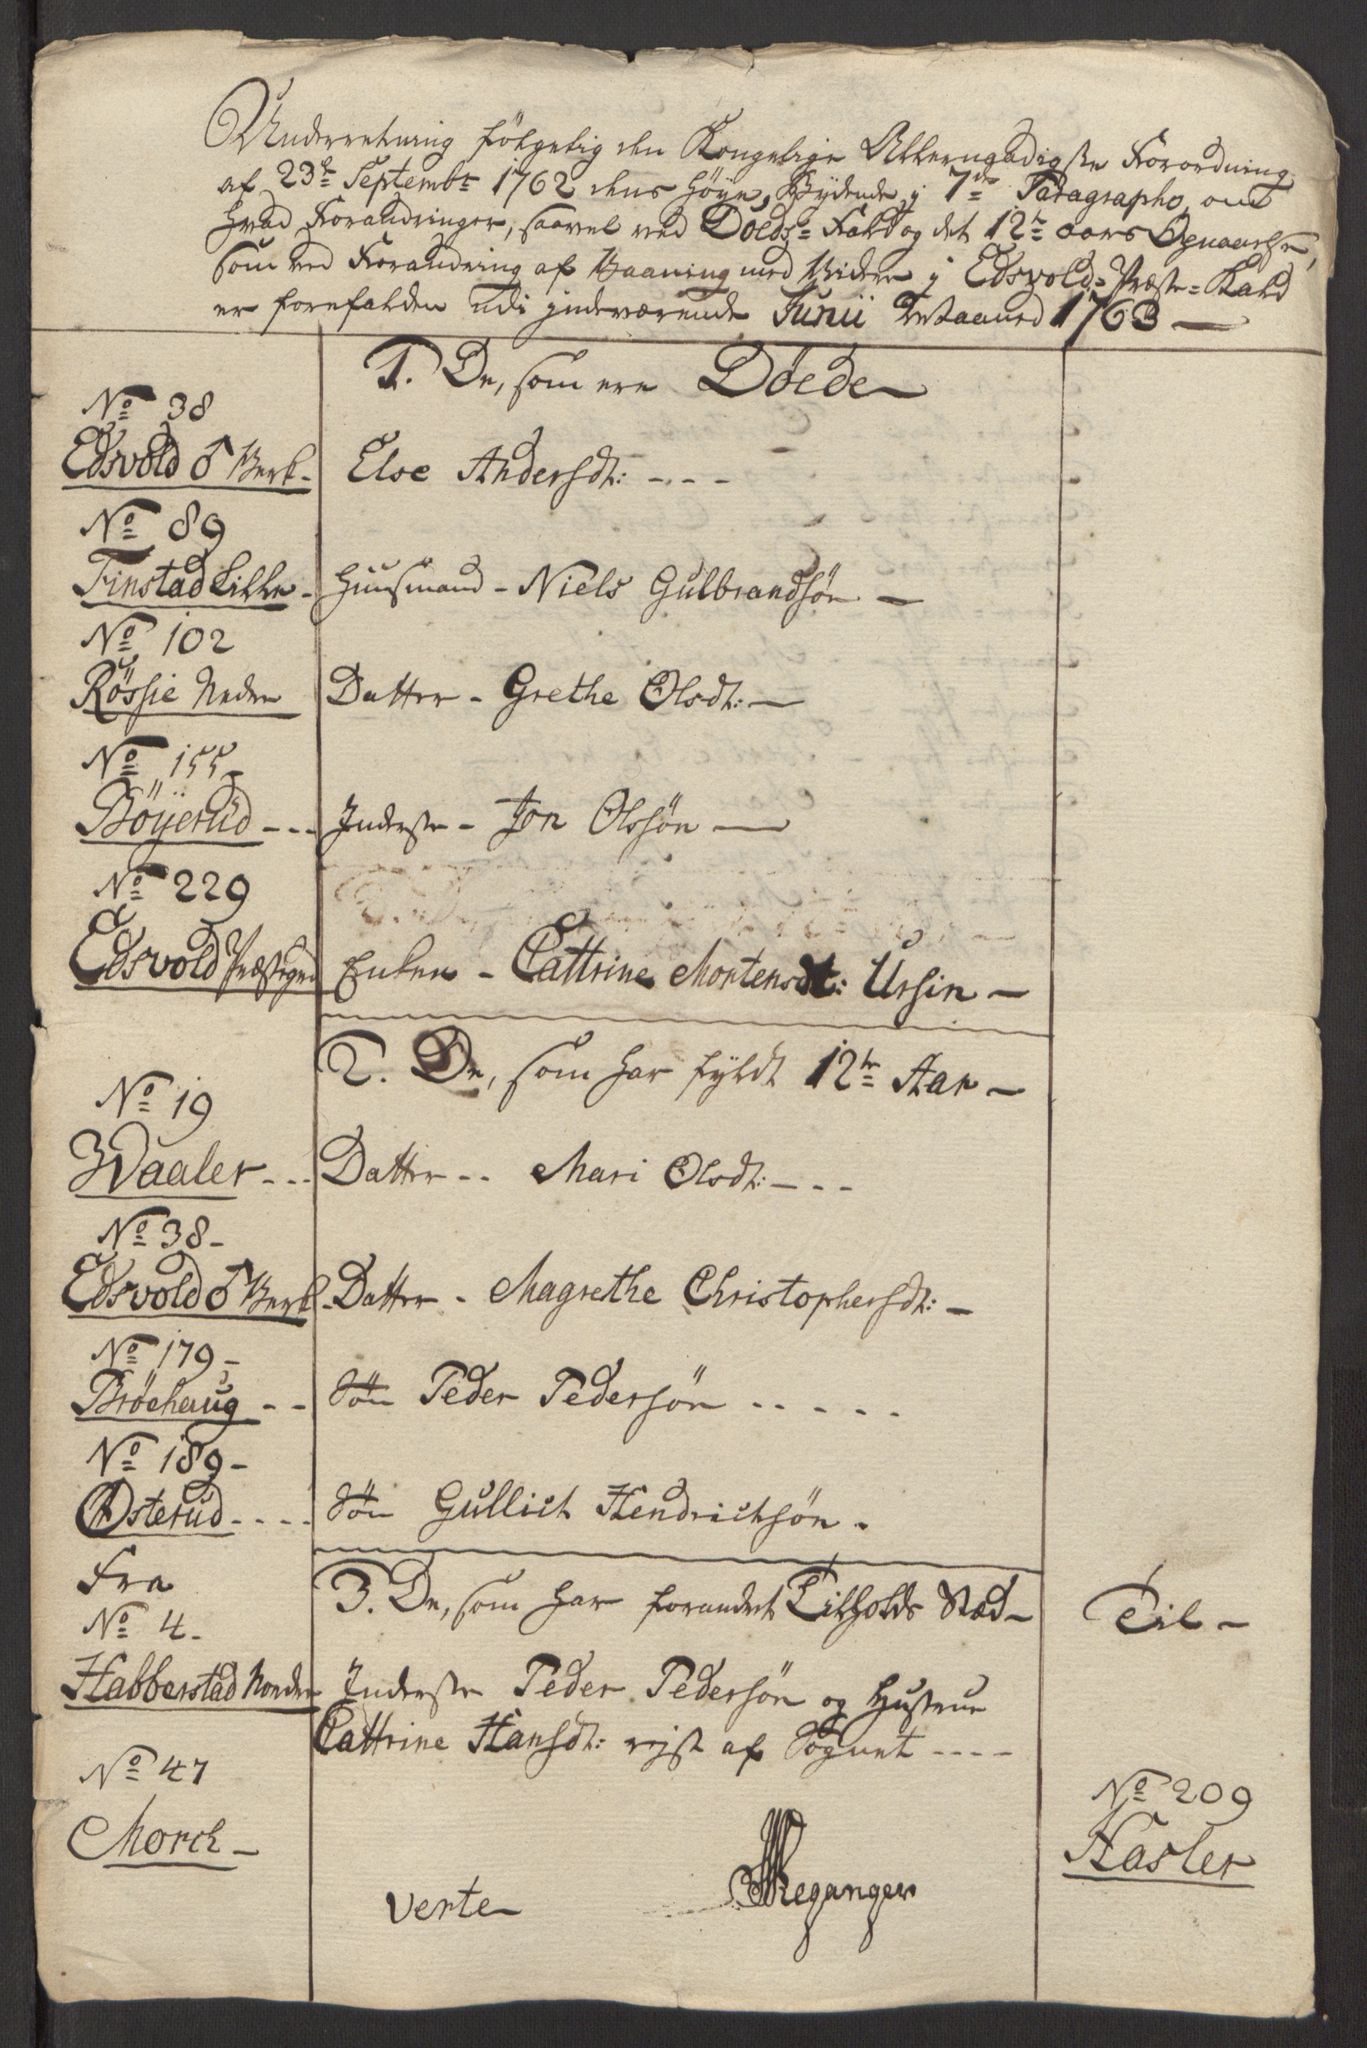 Underretning fölgelig den Kongelige Allernaadigste Forordning
af 23de Septembr 1762 dens höye Bydende, j 7de Paragrapho, om
hvad Forandringer, saavel ved Döds-Fald og det 12te aars
som ved Forandring af Vaaning med Videre j Edsvold-Præste-Kald
er forefalden udi jndeværende Junii Maaned 1763
1. De, som ere Döede
No 38
Edsvold ♂ Verk - Else Andersdt: ----
No 89
Finstad Lille - Huusmand - Niels Gulbrandsön -
No 102
Rössie Neder Datter - Grethe Olsdt: -
No 155
Böyerud --- Inderste - Jon Olssön -
No 229
Edsvold Præstegrd Enken - Cattrine Mortensdt: Ursin -
2. De, som har fyldt 12te Aar -
No 19
Waaler --- Datter -- Mari Olsdt: ---
No 38 -
Edsvold ♂ Verk - Datter - Magrethe Christophersdt: -
No 179 -
Bröehaug -- Sön Peder Pedersön -----
No 189 -
Österud ---- Sön Gullich Hendrichsön -
Fra 3. De, som har forandret Tilholds Stæd - Til -
No 4 -
Habberstad Norder Inderste Peder Pedersön og Hustrue
Cattrine Hansdt: rejst af Sognet ----
No 47 No 209
Morch - Hasler
verte